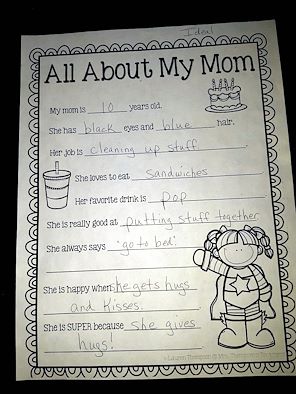 Ideal
All About My Mom
My mom is 10 years old.
She has black eyes and blue hair.
Her job is cleaning up stuff.
She loves to eat Sandwiches
Her favorite drink is pop
She is really good at putting stuff together
She always says "go to bed".
She is happy when he gets hugs
and kisses.
She is SUPER because she gives
hugs!